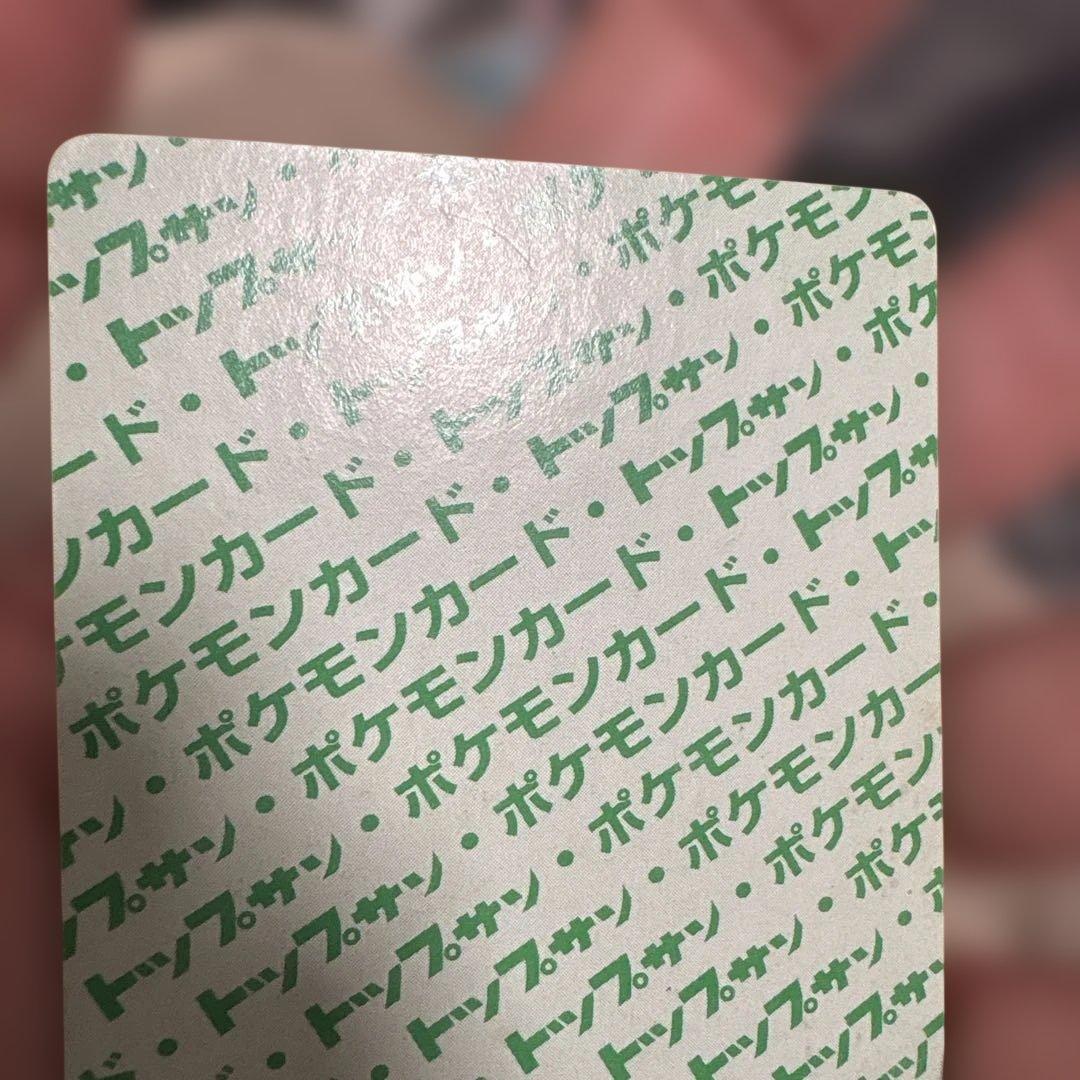 サン・
ップサン・
・トップサ
ード・トッ
ンカード・ト ・ポケモ
ケモンカード・トップサン・ポケモン
ポケモンカード・トップサン・ポケモン
・ポケモンカード・トップサン・ポケ
サン・ポケモンカード・トップサン・
ップサン・ポケモンカード・トップサ
トップサン・ポケモンカード・トッ
トップサン・ポケモンカード・
トップサン・ポケモンカー
ド・トップサン・ポケモン
・トップサン・ポケモン
・トップサン・ポケ
トップサン・
トップサ